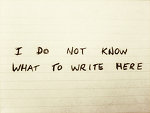 I DO NOT KNOW
WHAT TO WRITE HERE